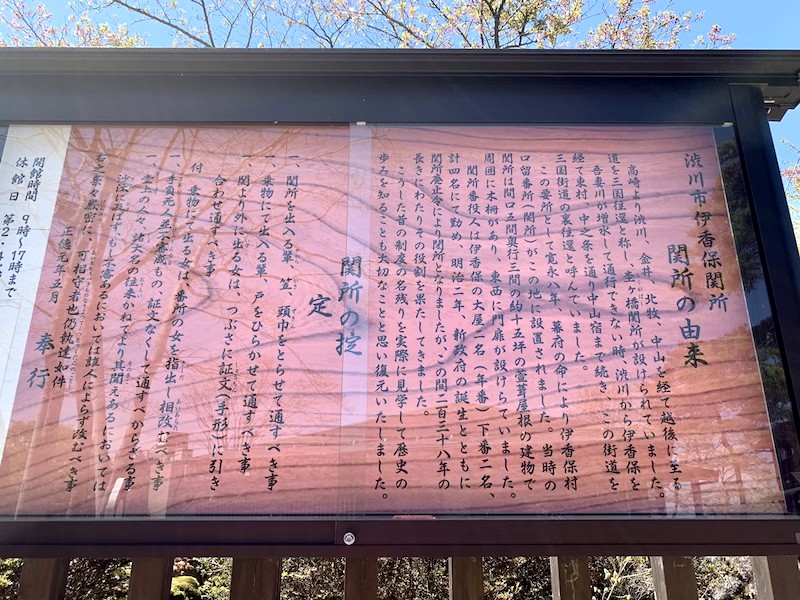 渋川市伊香保関所
関所の由来
高崎より渋川、金井、北牧、中山を経て越後に至る
道を三国往還と称し、杢ヶ橋関所が設けられていました。
吾妻川が増水して通行できない時、渋川から伊香保を
経て東村、中之条を通り中山宿まで続き、この街道を
三国街道の裏往還と呼んでいました。
この要所として寛永八年、幕府の命により伊香保村
口留番所(関所)がこの地に設置されました。当時の
関所は間口五間奥行三間の約十五坪の萱葺屋根の建物で
周囲に木柵があり、東西に門扉が設けらていました。
関所番役人は伊香保の大屋二名(年番)下番二名、
計四名にて勤め、明治二年、新政府の誕生とともに
関所廃止令により閉所となりましたが、この間二百三十八年の
長きにわたりその役割を果たしてきました。
こうした昔の制度の名残りを実際に見学して歴史の
歩みを知ることも大切なことと思い復元いたしました。
関所の掟
定
一、関所を出入る輩、笠、頭巾をとらせて通すべき事
一、乗物にて出入る輩、戸をひらかせて通すべき事
一、関より外に出る女は、つぶさに証文(手形)に引き
合わせ通すべき事
付、乗物にて出る女は、番所の女を指出し相改むべき事
一、手負死人並不審成もの、証文なくして通すべからざる事
一、堂上の人々、諸大名の往来かねてより其聞えあるにおいては
沙汰に及ばず、もし不審あるにおいては誰人によらず改むべき事
右之条々厳密に、可相守者也仍執達如件
正徳元年五月
奉行
開館時間 9時〜17時まで
休館日 第2・4